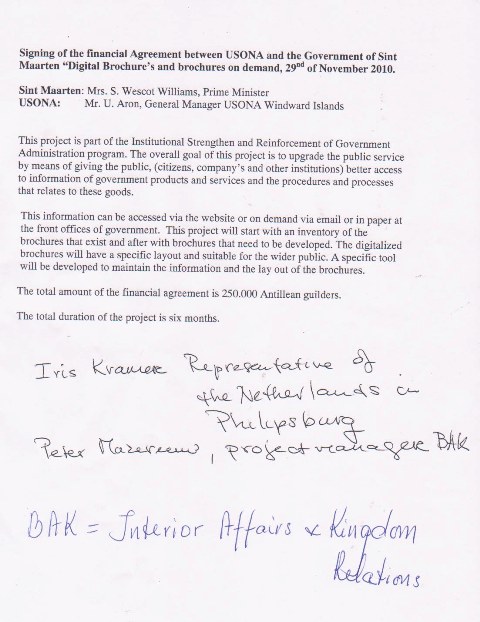 Signing of the financial Agreement between USONA and the Government of Sint
Maarten "Digital Brochure's and brochures on demand, 29nd of November 2010.
Sint Maarten: Mrs. S. Wescot Williams, Prime Minister
USONA: Mr. U. Aron, General Manager USONA Windward Islands
This project is part of the Institutional Strengthen and Reinforcement of Government
Administration program. The overall goal of this project is to upgrade the public service
by means of giving the public, (citizens, company's and other institutions) better access
to information of government products and services and the procedures and processes
that relates to these goods.
This information can be accessed via the website or on demand via email or in paper at
the front offices of government. This project will start with an inventory of the
brochures that exist and after with brochures that need to be developed. The digitalized
brochures will have a specific layout and suitable for the wider public. A specific tool
will be developed to maintain the information and the lay out of the brochures.
The total amount of the financial agreement is 250.000 Antillean guilders.
The total duration of the project is six months.
Iris Kramer Representative of
the Netherlands in
Philipsburg
Peter , projectmanager BAK
BAK = Interior Affairs & Kingdom
Relations